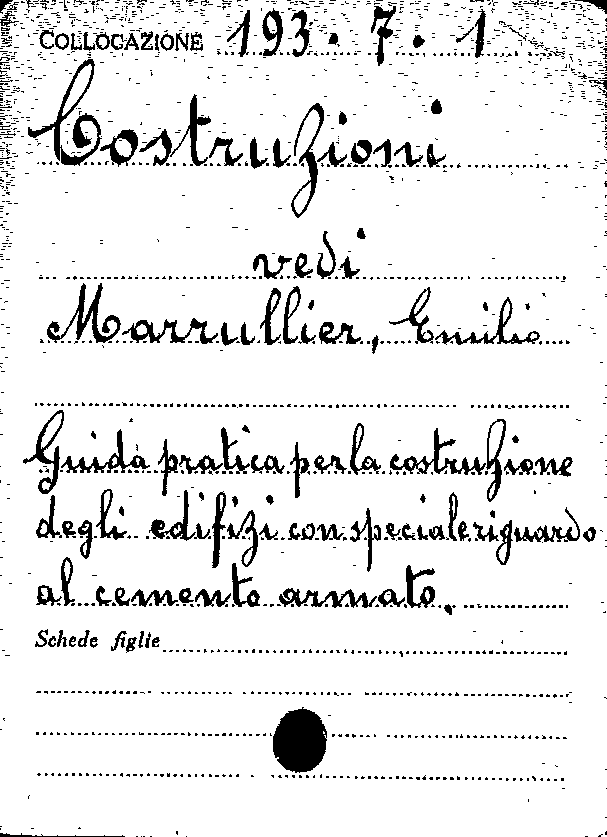 COLLOCAZIONE 193 . 7 . 1
Costruzioni
vedi
Marrullier, Emilio
Guida pratica per la costruzione
degli edifizi con speciale riguardo
al cemento armato.
Schede figlie